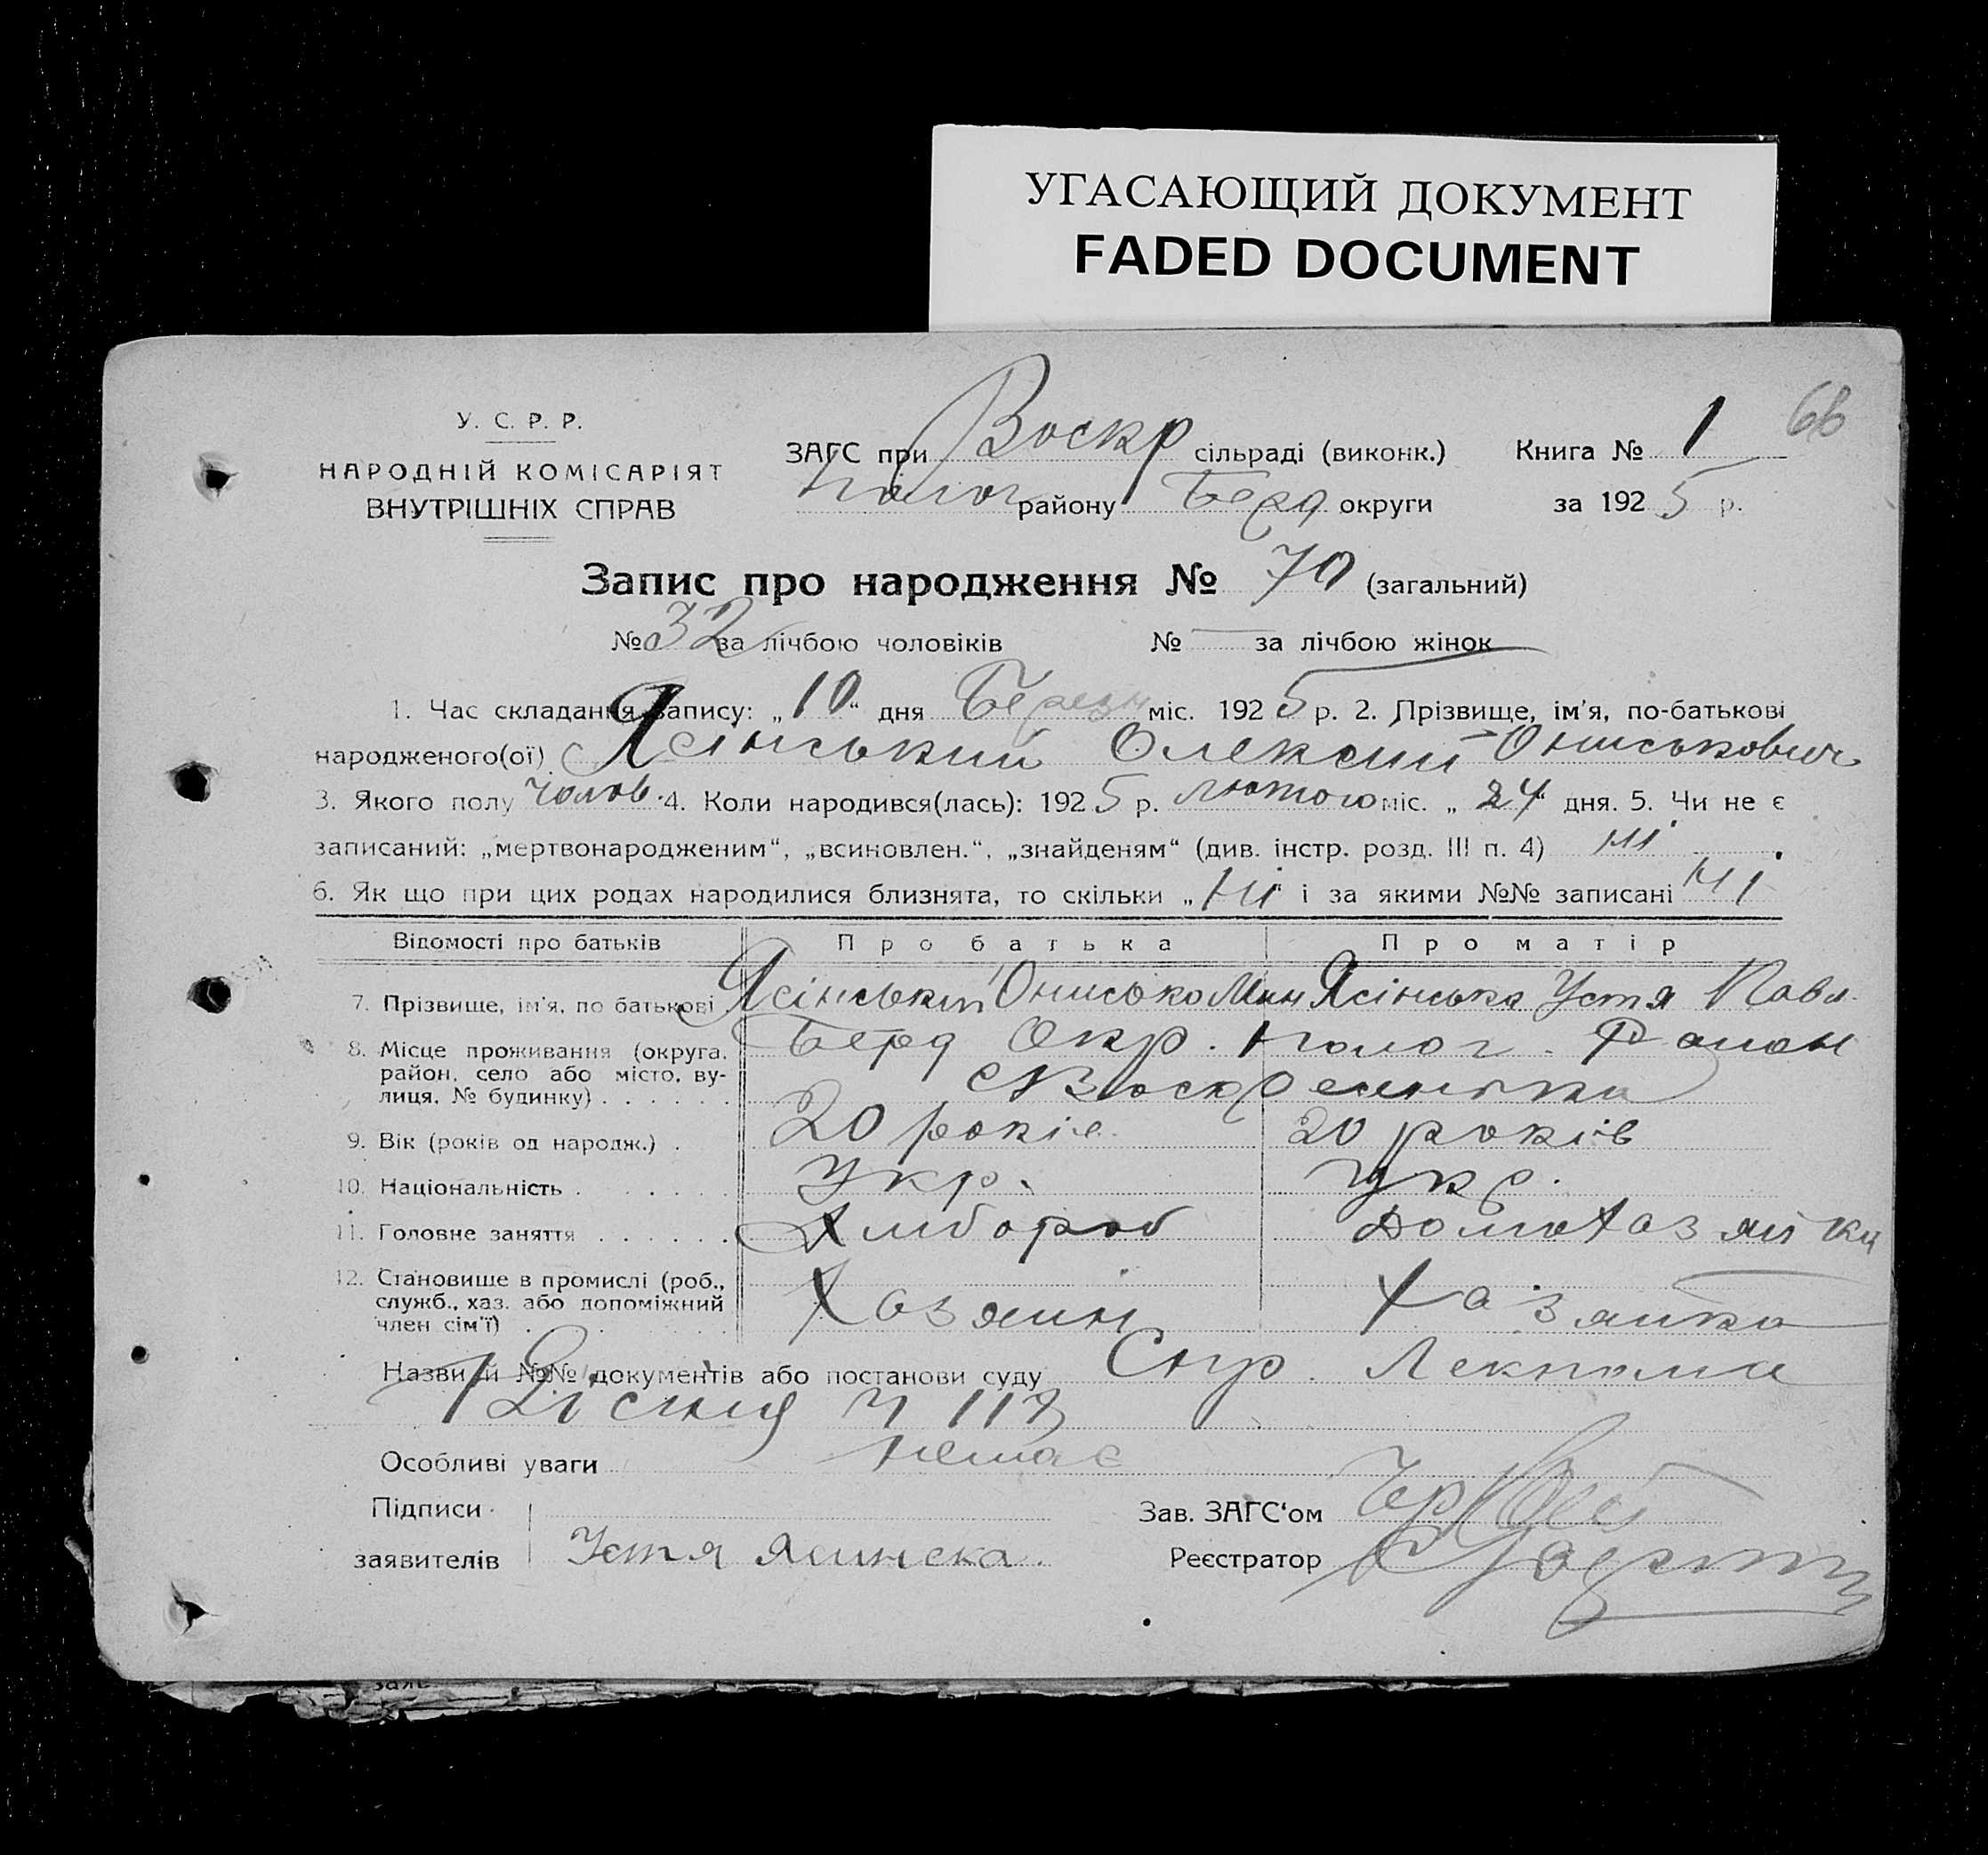 УГАСАЮЩИЙ ДОКУМЕНТ
FADED DOCUMENT
66
У. С. Р. Р.
НАРОДНІЙ КОМІСАРІЯТ
ВНУТРІШНІХ СПРАВ
ЗАГС при Воскр сільраді (виконк.) Книга № 1
Полог району Берд округи за 1925 р.
Запис про народження № 70 (загальний)
№ 32 за лічбою чоловіків № — за лічбою жінок
1. Час складання запису: „10“ дня Березн міс. 1925 р. 2. Прізвище, ім'я, по-батькові
народженого(ої) Ясінський Олексий Ониськович
3. Якого полу чолов. 4. Коли народився(лась): 1925 р. лютого міс. „24“ дня. 5. Чи не є
записаний: „мертвонародженим“, „всиновлен.“, „знайденям“ (див. інстр. розд. III п. 4) ні
6. Як що при цих родах народилися близнята, то скільки „ні“ і за якими №№ записані ні
Відомості про батьків Про батька Про матір
7. Прізвище, ім'я, по батькові Ясінський Онисько Мин Ясінська Устя Павл.
8. Місце проживання (округа, район, село або місто, вулиця, № будинку) Берд Окр. Полог. Район
с Воскресенька
9. Вік (років од народж.) 20 років 20 років
10. Національність Укр. Укр.
11. Головне заняття Хлібороб Домохазяйка
12. Становище в промислі (роб., служб., хаз. або допоміжний член сім'ї) Хазяин Хазяйка
Назви й №№ документів або постанови суду Спр. Лекпома
118
Особливі уваги немає
Підписи Зав. ЗАГС'ом
заявителів Устя Ясинска Реєстратор
заяв